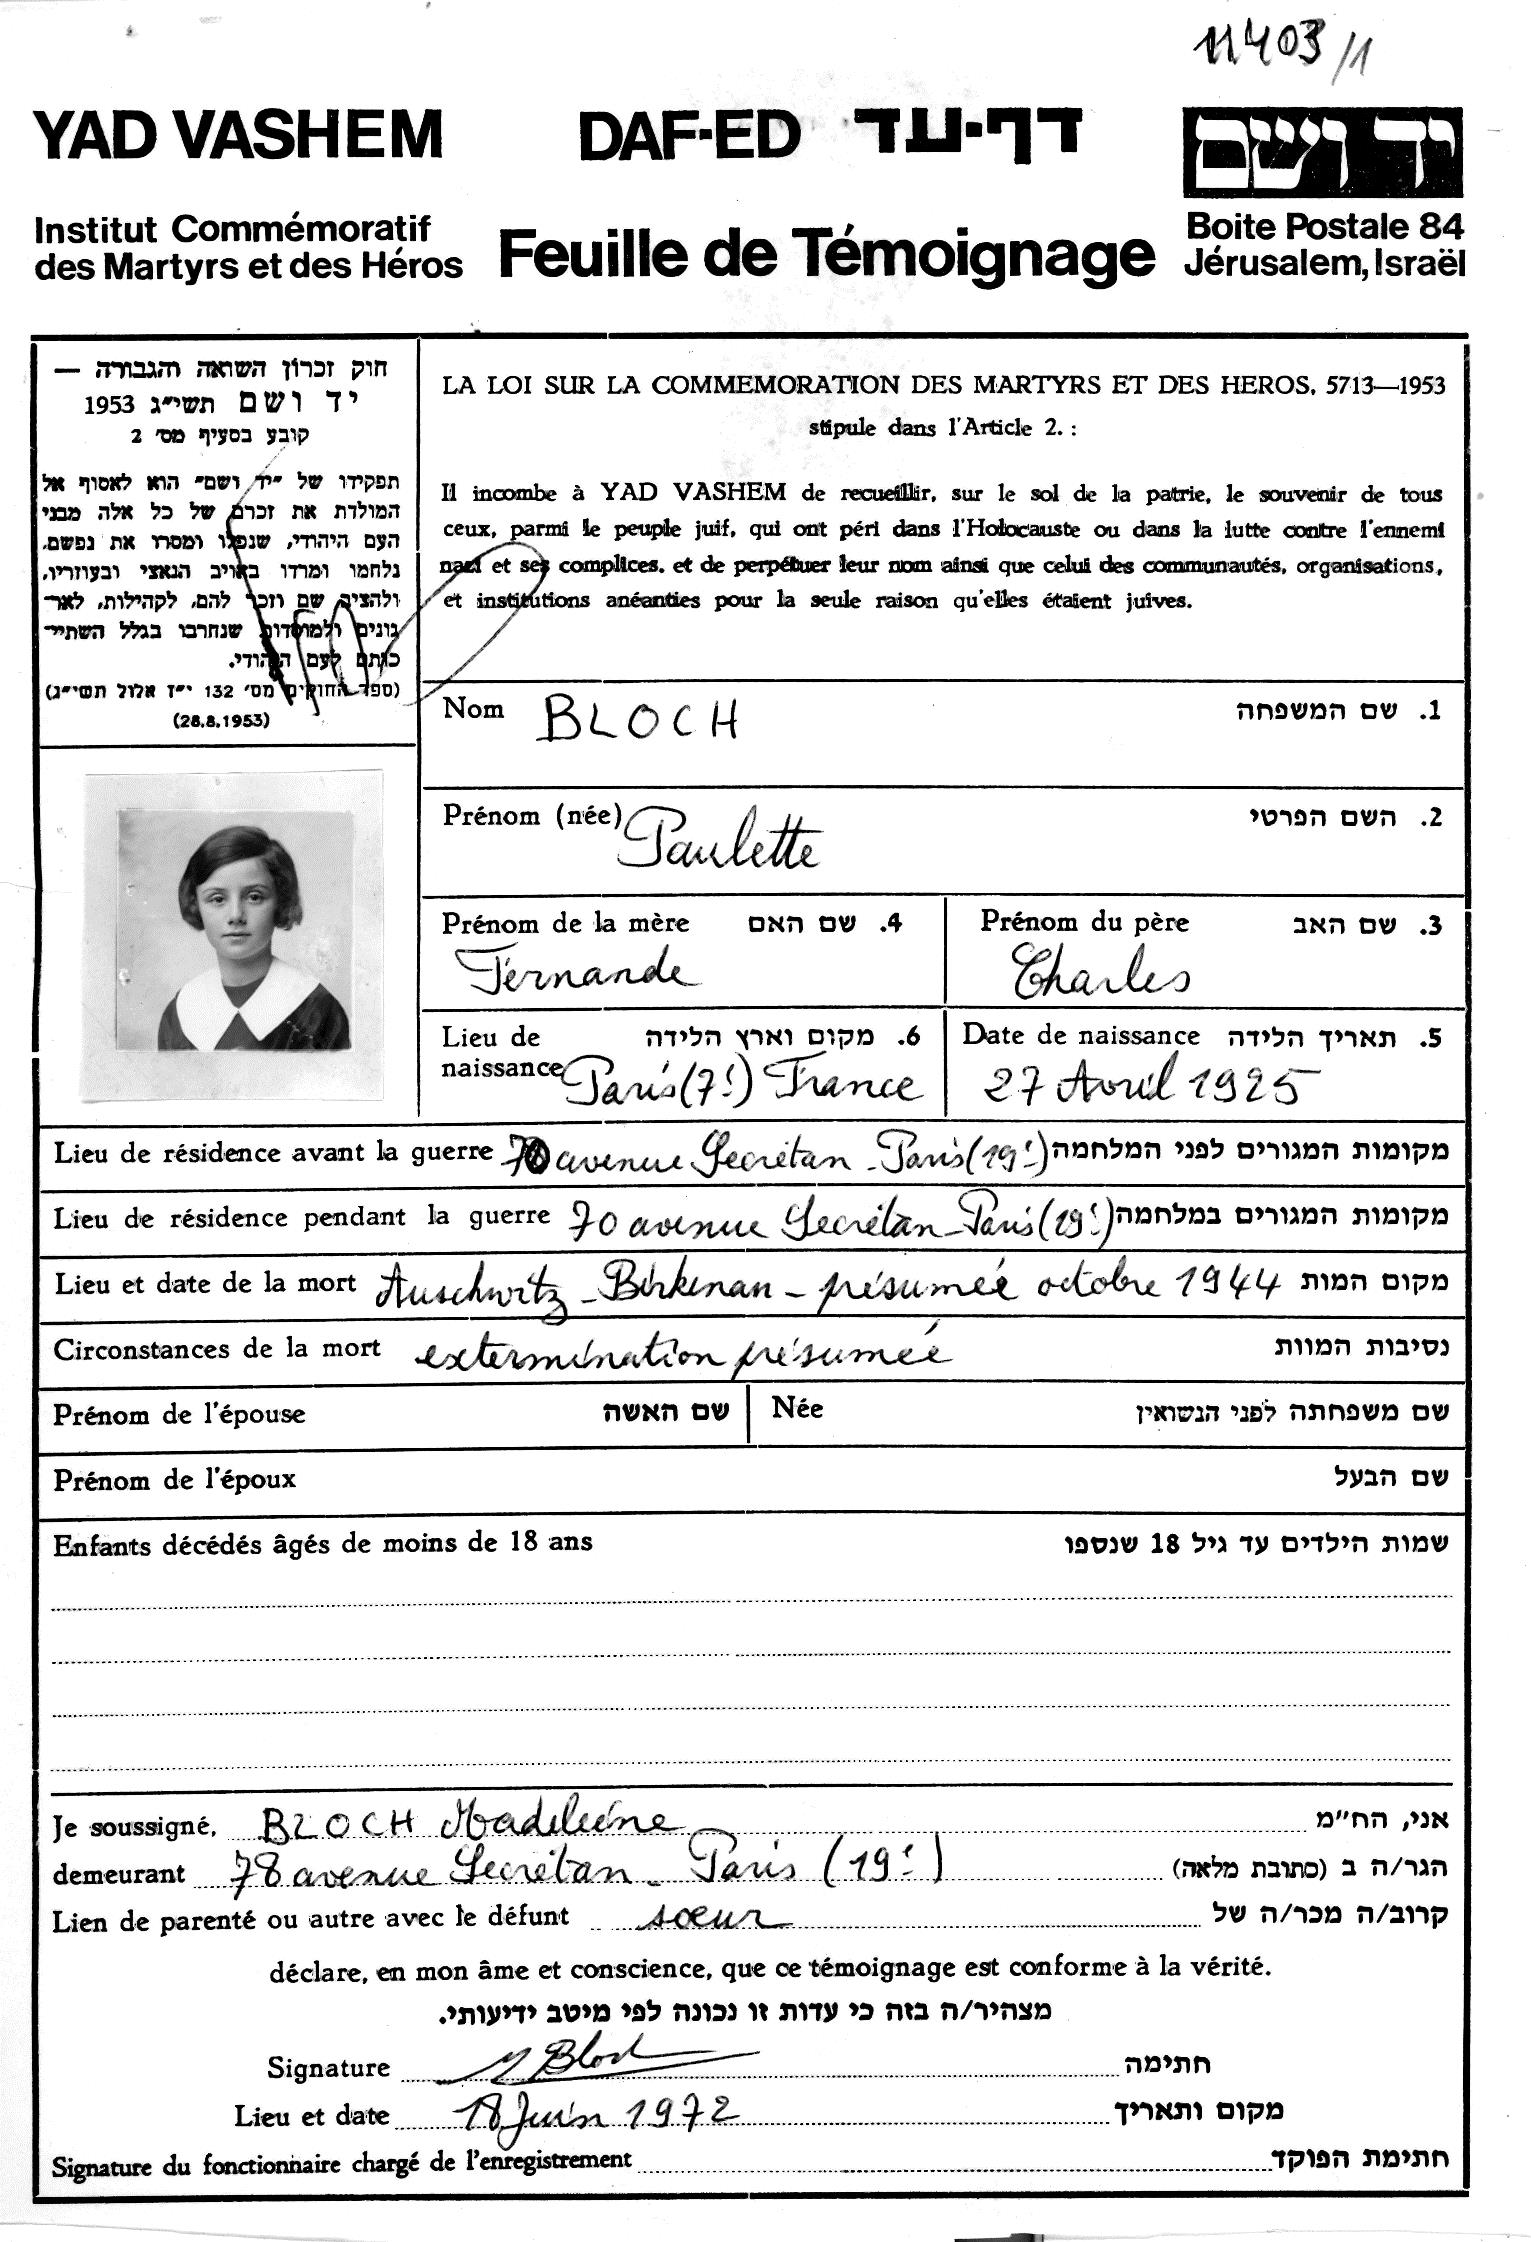 11403/1
YAD VASHEM DAF-ED דף-עד יד ושם
Institut Commémoratif
des Martyrs et des Héros
Feuille de Témoignage
Boite Postale 84
Jérusalem, Israël
חוק זכרון השואה והגבורה —
יד ושם תשי״ג 1953
קובע בסעיף מס׳ 2
תפקידו של ״יד ושם״ הוא לאסוף אל
המולדת את זכרם של כל אלה מבני
העם היהודי, שנפלו ומסרו את נפשם,
נלחמו ומרדו באויב הנאצי ובעוזריו,
ולהציב שם וזכר להם, לקהילות, לאר־
גונים ולמוסדות שנחרבו בגלל השתיי־
כותם לעם היהודי.
(ספר החוקים מס׳ 132 י״ז אלול תשי״ג)
(28.8.1953)
LA LOI SUR LA COMMEMORATION DES MARTYRS ET DES HEROS, 5713—1953
stipule dans l'Article 2. :
Il incombe à YAD VASHEM de recueillir, sur le sol de la patrie, le souvenir de tous
ceux, parmi le peuple juif, qui ont péri dans l'Holocauste ou dans la lutte contre l'ennemi
nazi et ses complices. et de perpétuer leur nom ainsi que celui des communautés, organisations,
et institutions anéanties pour la seule raison qu'elles étaient juives.
Nom BLOCH 1. שם המשפחה
Prénom (née) Paulette 2. השם הפרטי
Prénom de la mère 4. שם האם Prénom du père 3. שם האב
Fernande Charles
Lieu de 6. מקום וארץ הלידה Date de naissance 5. תאריך הלידה
naissance Paris (7e) France 27 Avril 1925
Lieu de résidence avant la guerre 70 avenue Secrétan - Paris (19e) מקומות המגורים לפני המלחמה
Lieu de résidence pendant la guerre 70 avenue Secrétan - Paris (19e) מקומות המגורים במלחמה
Lieu et date de la mort Auschwitz - Birkenau - présumée octobre 1944 מקום המות
Circonstances de la mort extermination présumée נסיבות המוות
Prénom de l'épouse שם האשה Née שם משפחתה לפני הנשואין
Prénom de l'époux שם הבעל
Enfants décédés âgés de moins de 18 ans שמות הילדים עד גיל 18 שנספו
Je soussigné, BLOCH Madeleine אני, הח״מ
demeurant 78 avenue Secrétan - Paris (19e) הגר/ה ב (כתובת מלאה)
Lien de parenté ou autre avec le défunt soeur קרוב/ה מכר/ה של
déclare, en mon âme et conscience, que ce témoignage est conforme à la vérité.
מצהיר/ה בזה כי עדות זו נכונה לפי מיטב ידיעותי.
Signature M Bloch חתימה
Lieu et date 18 Juin 1972 מקום ותאריך
Signature du fonctionnaire chargé de l'enregistrement חתימת הפוקד